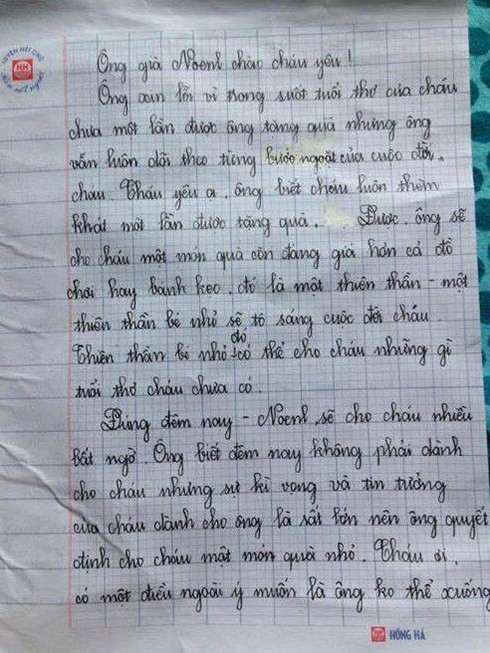 LUYỆN NẾT CHỮ
HH
RÈN NẾT NGƯỜI
Ông già Noenl chào cháu yêu!
Ông xin lỗi vì trong suốt tuổi thơ của cháu
chưa một lần được ông tặng quà nhưng ông
vẫn luôn dõi theo từng bước ngoặt của cuộc đời
cháu. Cháu yêu ạ, ông biết cháu luôn thèm
khát một lần được tặng quà. Được, ông sẽ
cho cháu một món quà còn đáng giá hơn cả đồ
chơi hay bánh kẹo, đó là một thiên thần - một
thiên thần bé nhỏ sẽ tô sáng cuộc đời cháu.
Thiên thần bé nhỏ đó có thể cho cháu những gì
tuổi thơ cháu chưa có.
Đúng đêm nay - Noenl, sẽ cho cháu nhiều
bất ngờ. Ông biết đêm nay không phải dành
cho cháu nhưng sự kì vọng và tin tưởng
của cháu dành cho ông là rất lớn nên ông quyết
định cho cháu một món quà nhỏ. Cháu ơi,
có một điều ngoài ý muốn là ông ko thể xuống
HH HỒNG HÀ